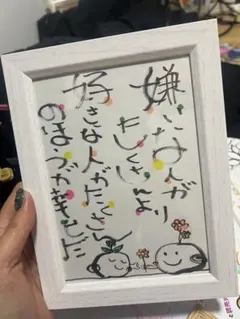 嫌いな人がいり
たくさんよ
好きな人がたくさん
のほうが幸せだ